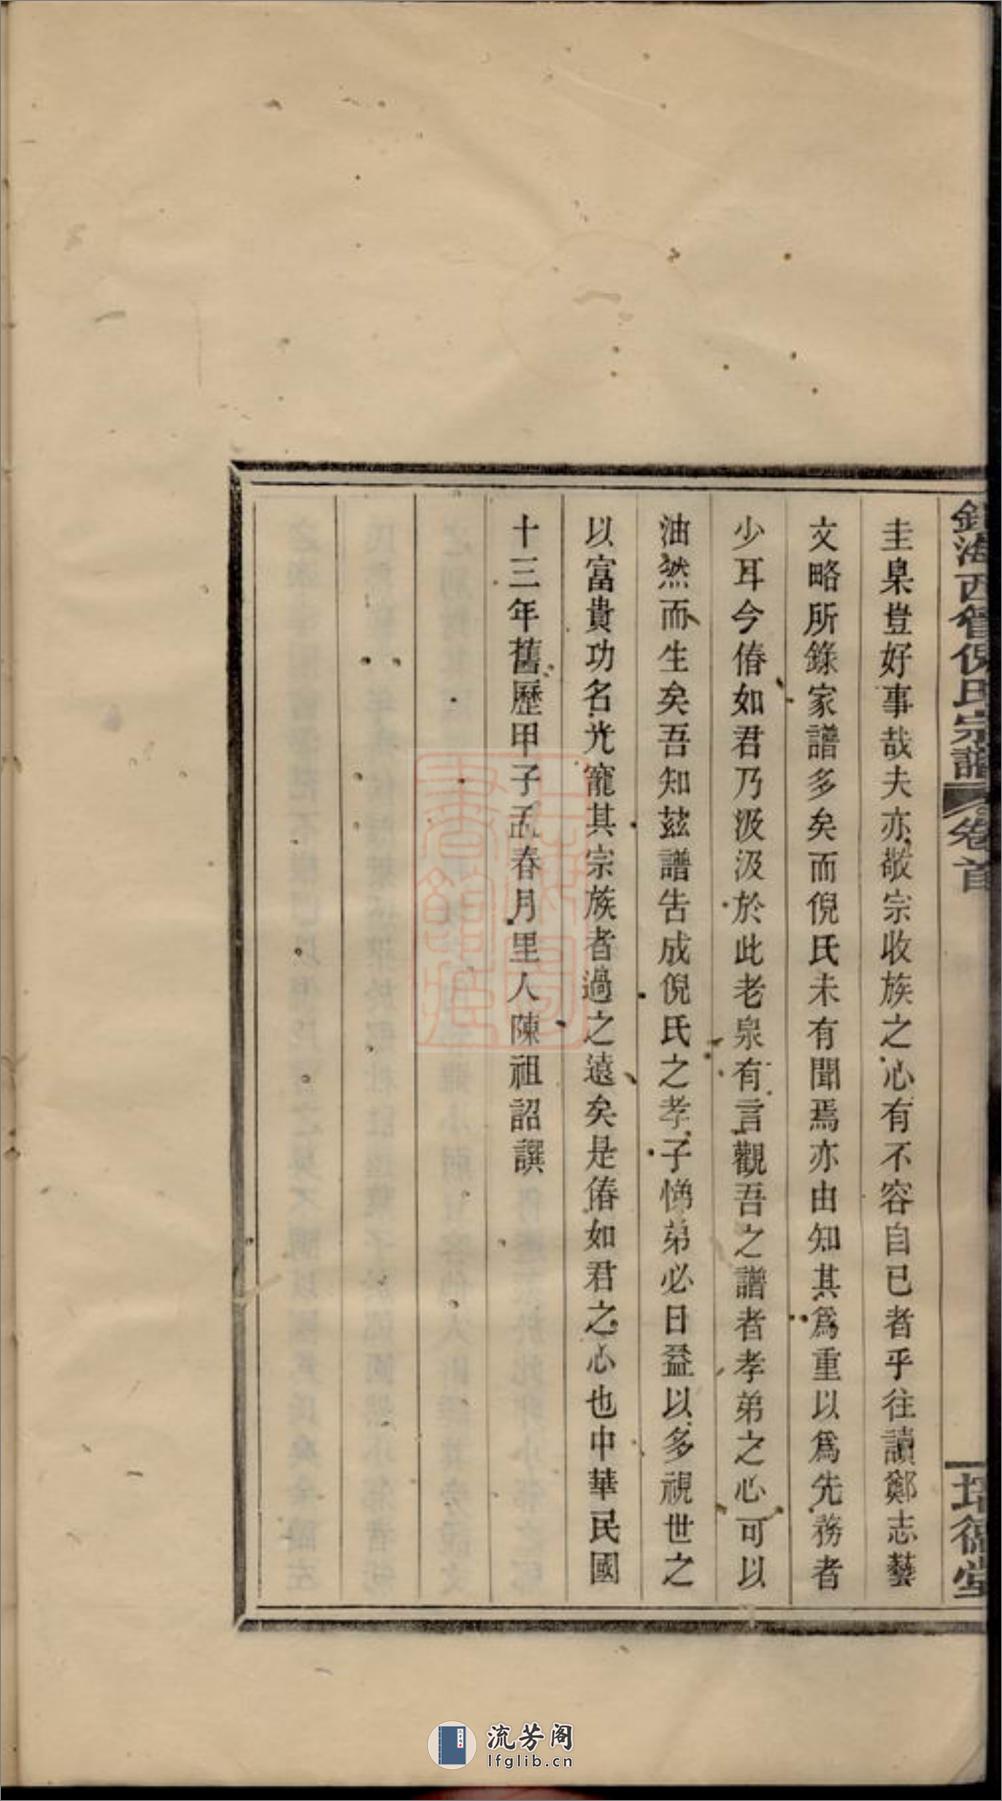 海西管倪氏宗譜 卷首 培德堂
圭臬豈好事哉夫亦敬宗收族之心有不容自已者乎往讀鄭志藝
文略所錄家譜多矣而倪氏未有聞焉亦由知其爲重以爲先務者
少耳今偆如君乃汲汲於此老泉有言觀吾之譜者孝弟之心可以
油然而生矣吾知茲譜告成倪氏之孝子悌弟必日益以多視世之
以富貴功名光寵其宗族者過之遠矣是偆如君之心也中華民國
十三年舊歷甲子孟春月里人陳祖詔譔
流芳阁
lfglib.cn